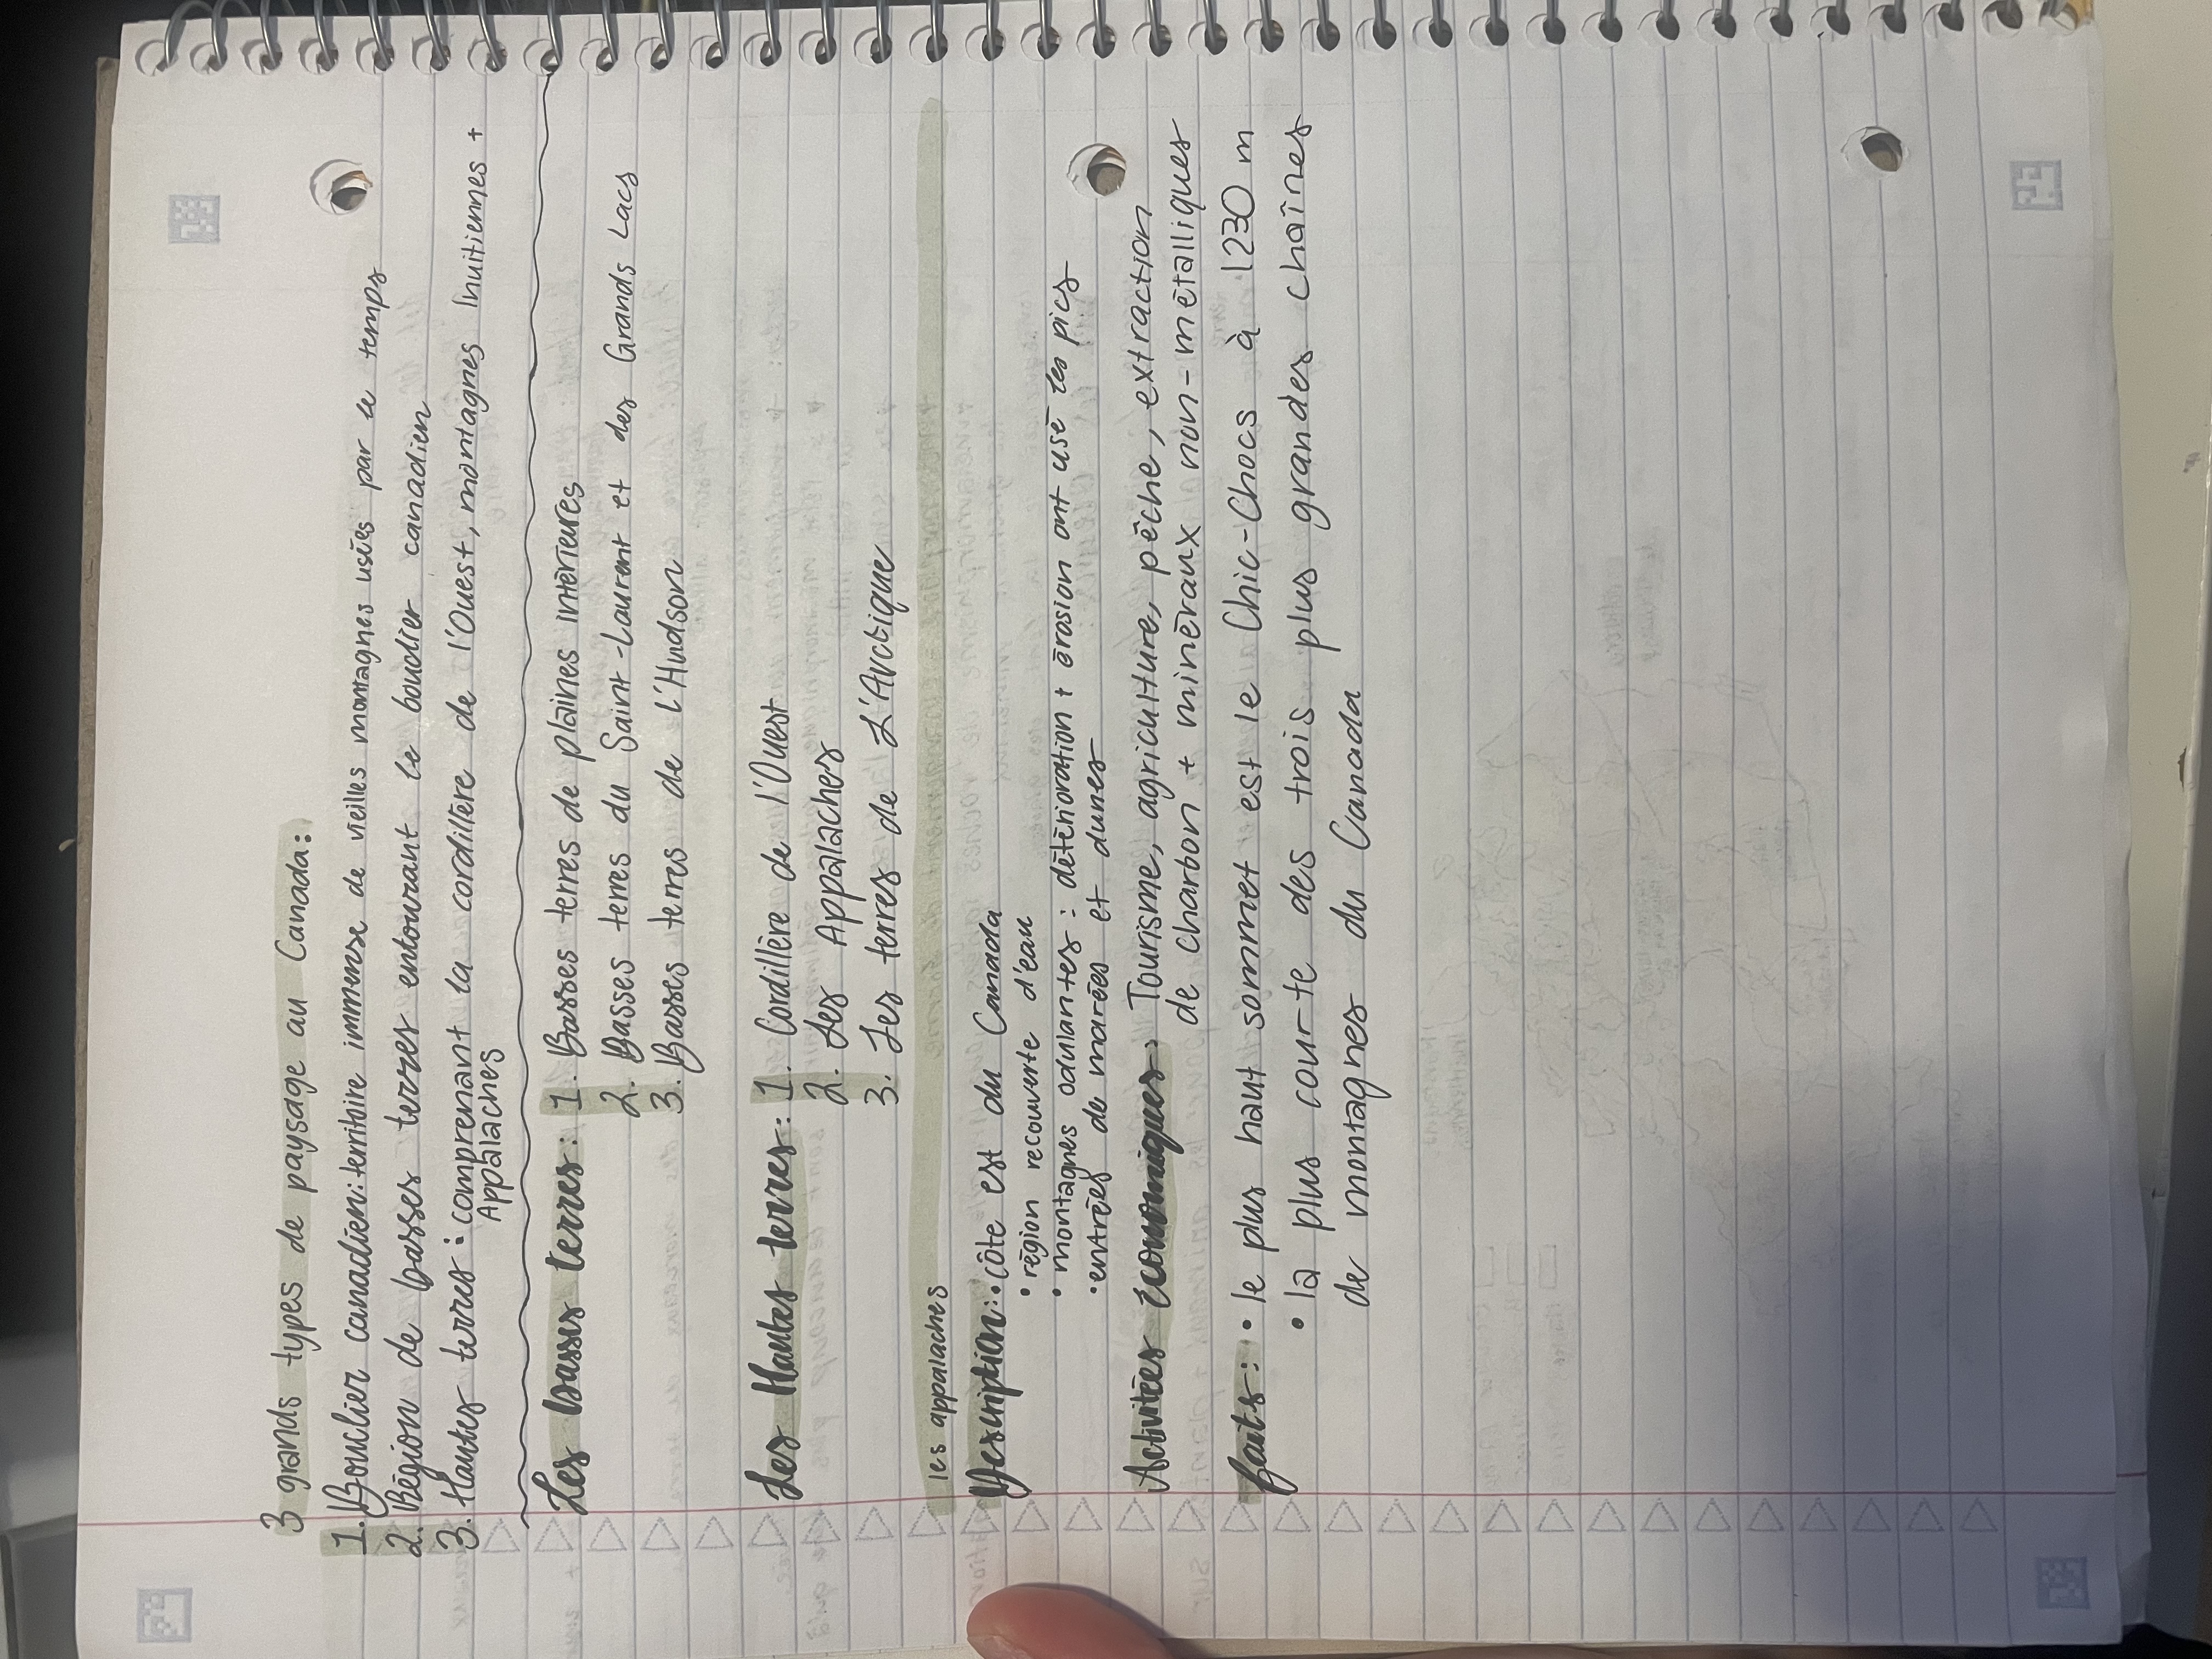 3 grands types de paysage au Canada:
1. Bouclier canadien: territoire immense de vieilles montagnes usées par le temps
2. Région de basses terres entourant le bouclier canadien
3. Hautes terres: comprenant la cordillère de l'Ouest, montagnes Inuitiennes +
Appalaches
Les basses terres: 1. Basses terres de plaines intérieures
2. Basses terres du Saint-Laurent et des Grands Lacs
3. Basses terres de l'Hudson
Les Hautes terres: 1. Cordillère de l'Ouest
2. Les Appalaches
3. Les terres de L'Arctique
les appalaches
Description: • côte est du Canada
• région recouverte d'eau
• montagnes odulantes: déténioration + érosion ont usé les pics
• entrées de marées et dunes
Activitées économiques → Tourisme, agriculture, pêche, extraction
de charbon + minéraux non-métalliques
faits: • le plus haut sommet est le Chic-Chocs à 1230 m
• la plus courte des trois plus grandes chaînes
de montagnes du Canada